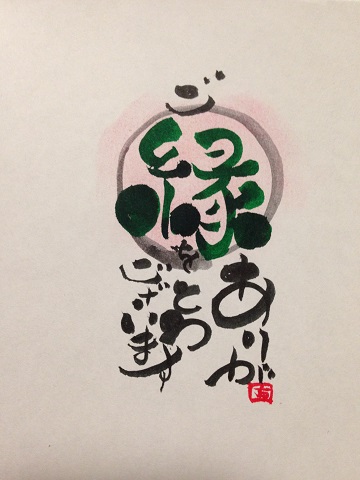 ご
縁
を
ありが
とう
ございます